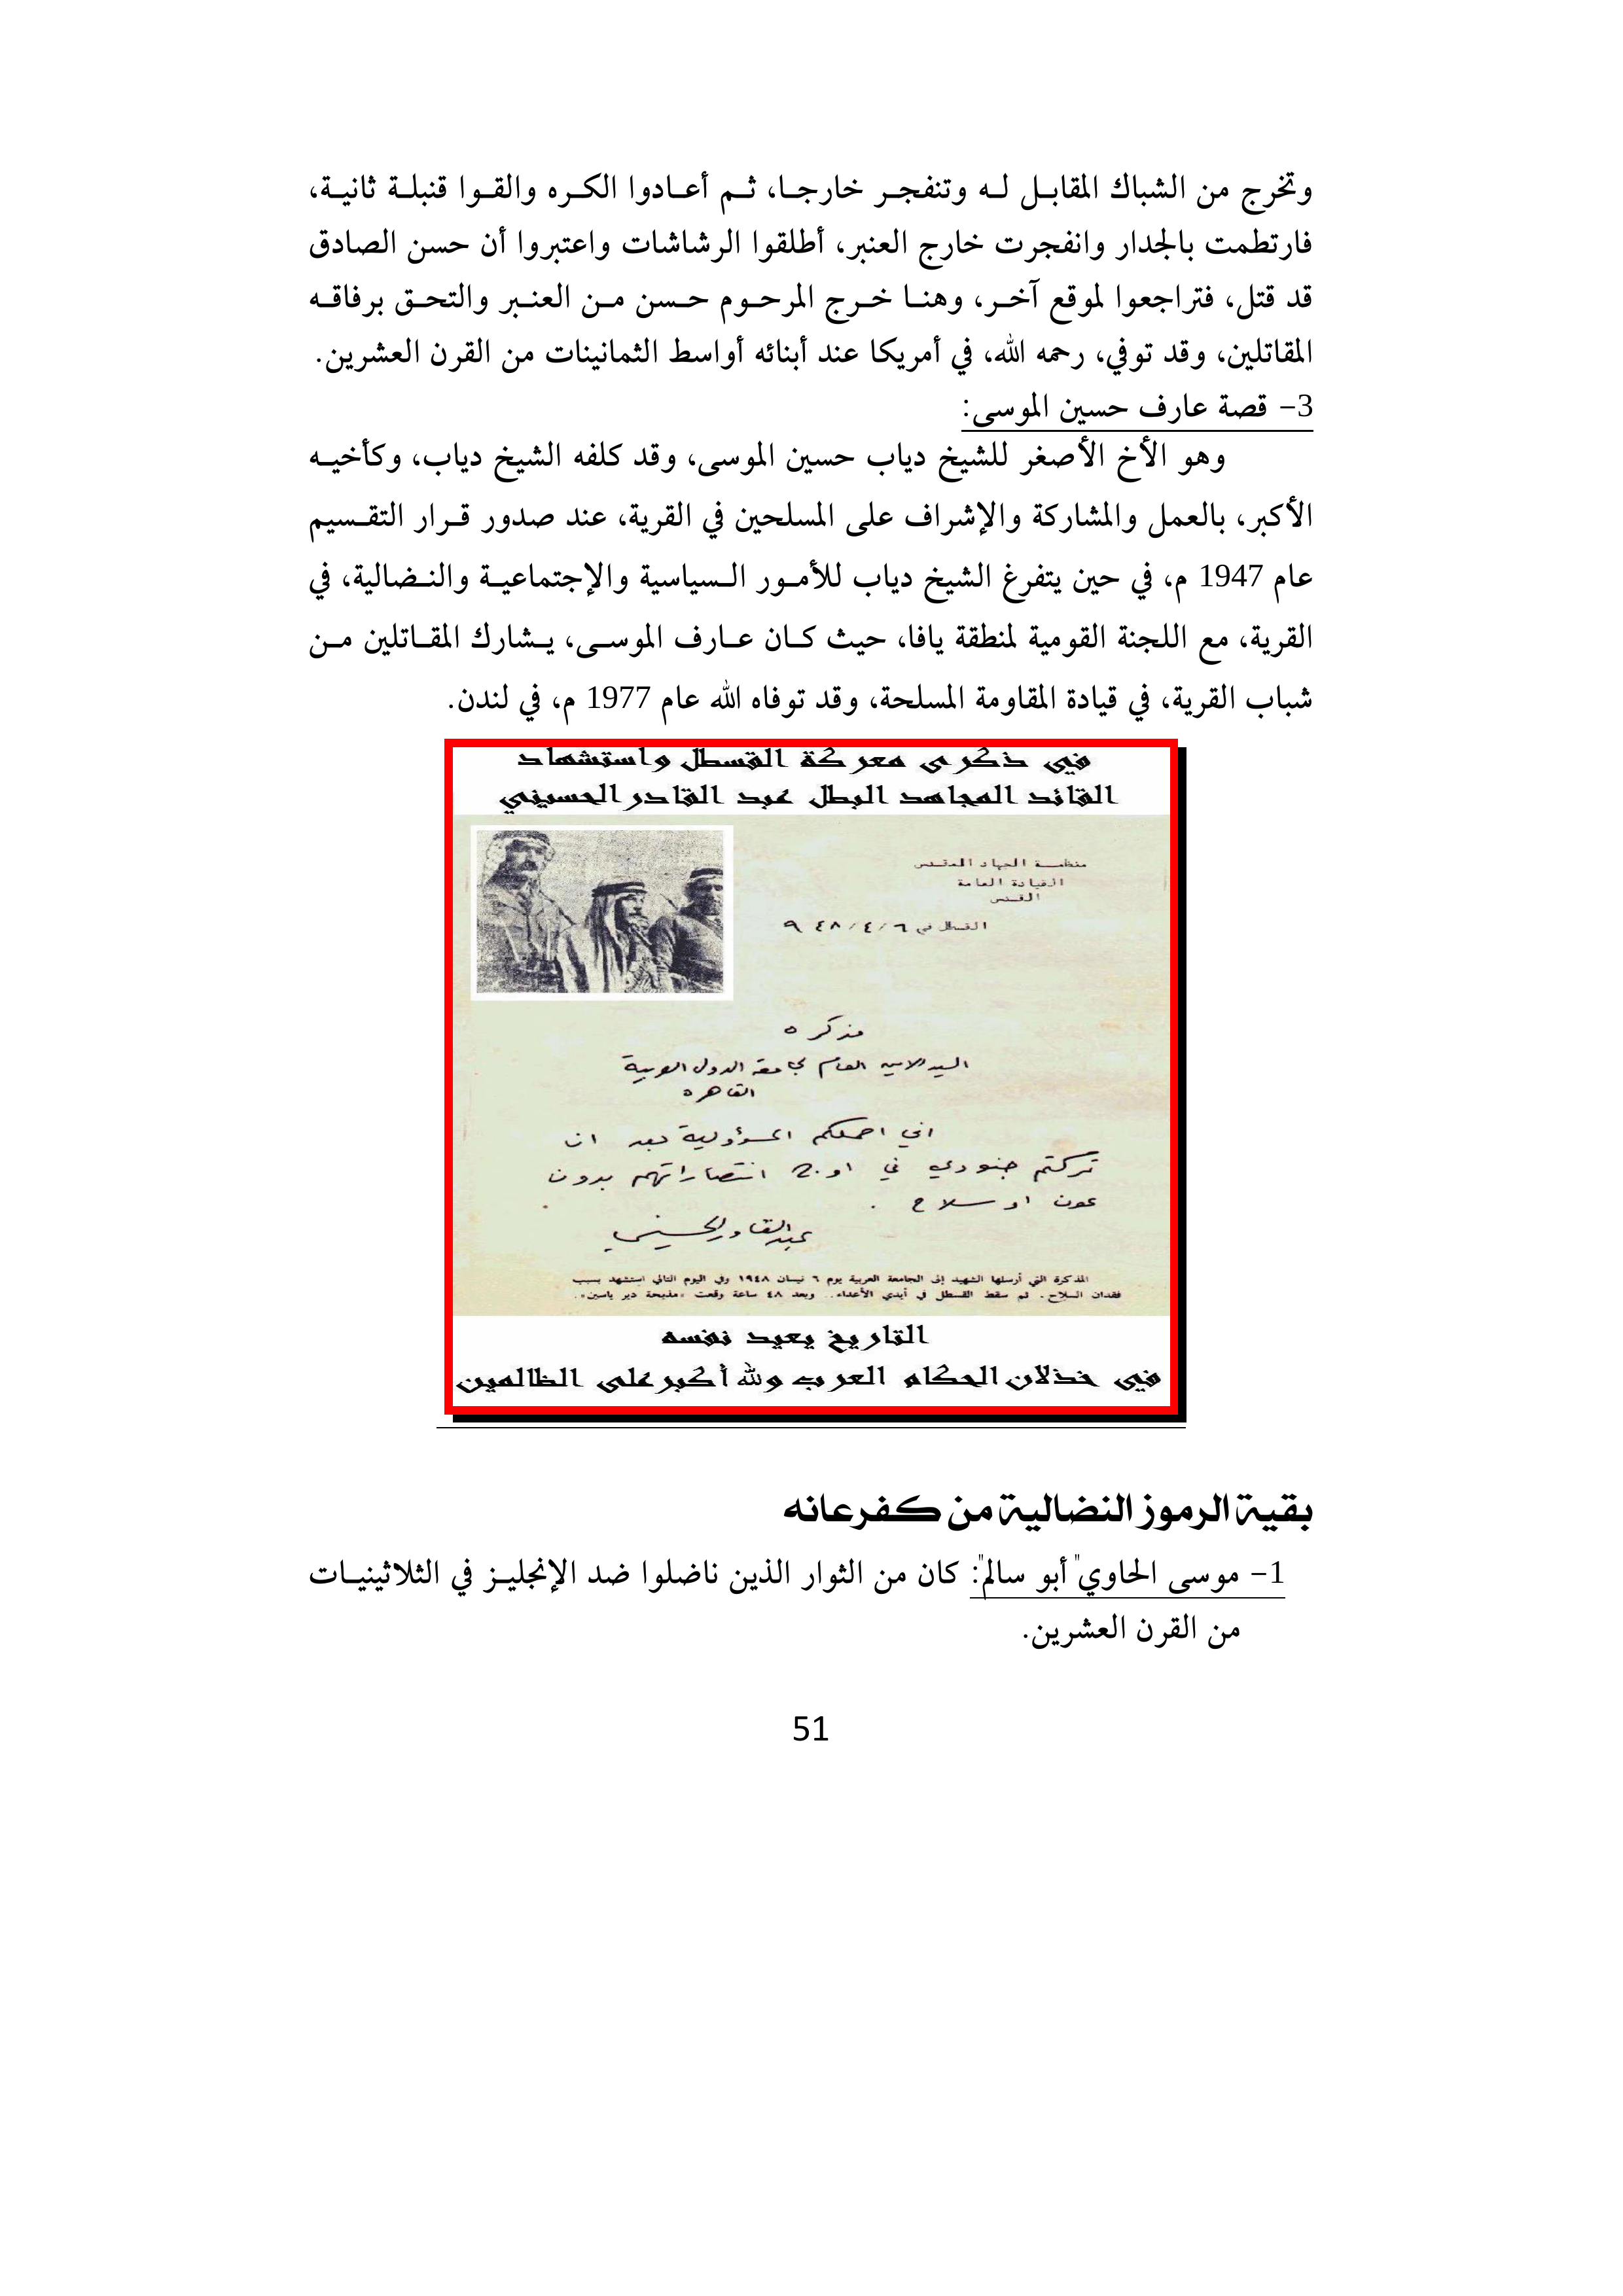 وتخرج من الشباك المقابل له وتنفجر خارجا، ثم أعادوا الكره والقوا قنبلة ثانية،
فارتطمت بالجدار وانفجرت خارج العنبر، أطلقوا الرشاشات واعتبروا أن حسن الصادق
قد قتل، فتراجعوا لموقع آخر، وهنا خرج المرحوم حسن من العنبر والتحق برفاقه
المقاتلين، وقد توفي، رحمه الله، في أمريكا عند أبنائه أواسط الثمانينات من القرن العشرين.
3- قصة عارف حسين الموسى:
وهو الأخ الأصغر للشيخ دياب حسين الموسى، وقد كلفه الشيخ دياب، وكأخيه
الأكبر، بالعمل والمشاركة والإشراف على المسلحين في القرية، عند صدور قرار التقسيم
عام 1947 م، في حين يتفرغ الشيخ دياب للأمور السياسية والإجتماعية والنضالية، في
القرية، مع اللجنة القومية لمنطقة يافا، حيث كان عارف الموسى، يشارك المقاتلين من
شباب القرية، في قيادة المقاومة المسلحة، وقد توفاه الله عام 1977 م، في لندن.
في ذكرى معركة القسطل واستشهاد
القائد المجاهد البطل عبد القادر الحسيني
منظمة الجهاد المقدس
القيادة العامة
القدس
القسطل في ٦/٤/٩٤٨
مذكره
السيد الامين العام لجامعة الدول العربية
القاهره
اني احملكم المسؤولية بعد ان
تركتم جنودي في اوج انتصاراتهم بدون
عون او سلاح .
عبد القادر الحسيني
المذكرة التي أرسلها الشهيد إلى الجامعة العربية يوم ٦ نيسان ١٩٤٨ وفي اليوم التالي استشهد بسبب
فقدان السلاح. ثم سقط القسطل في أيدي الأعداء.. وبعد ٤٨ ساعة وقعت «مذبحة دير ياسين».
التاريخ يعيد نفسه
في خذلان الحكام العرب ولله أكبر على الظالمين
بقية الرموز النضالية من كفرعانه
1- موسى الحاوي "أبو سالم": كان من الثوار الذين ناضلوا ضد الإنجليز في الثلاثينيات
من القرن العشرين.
51